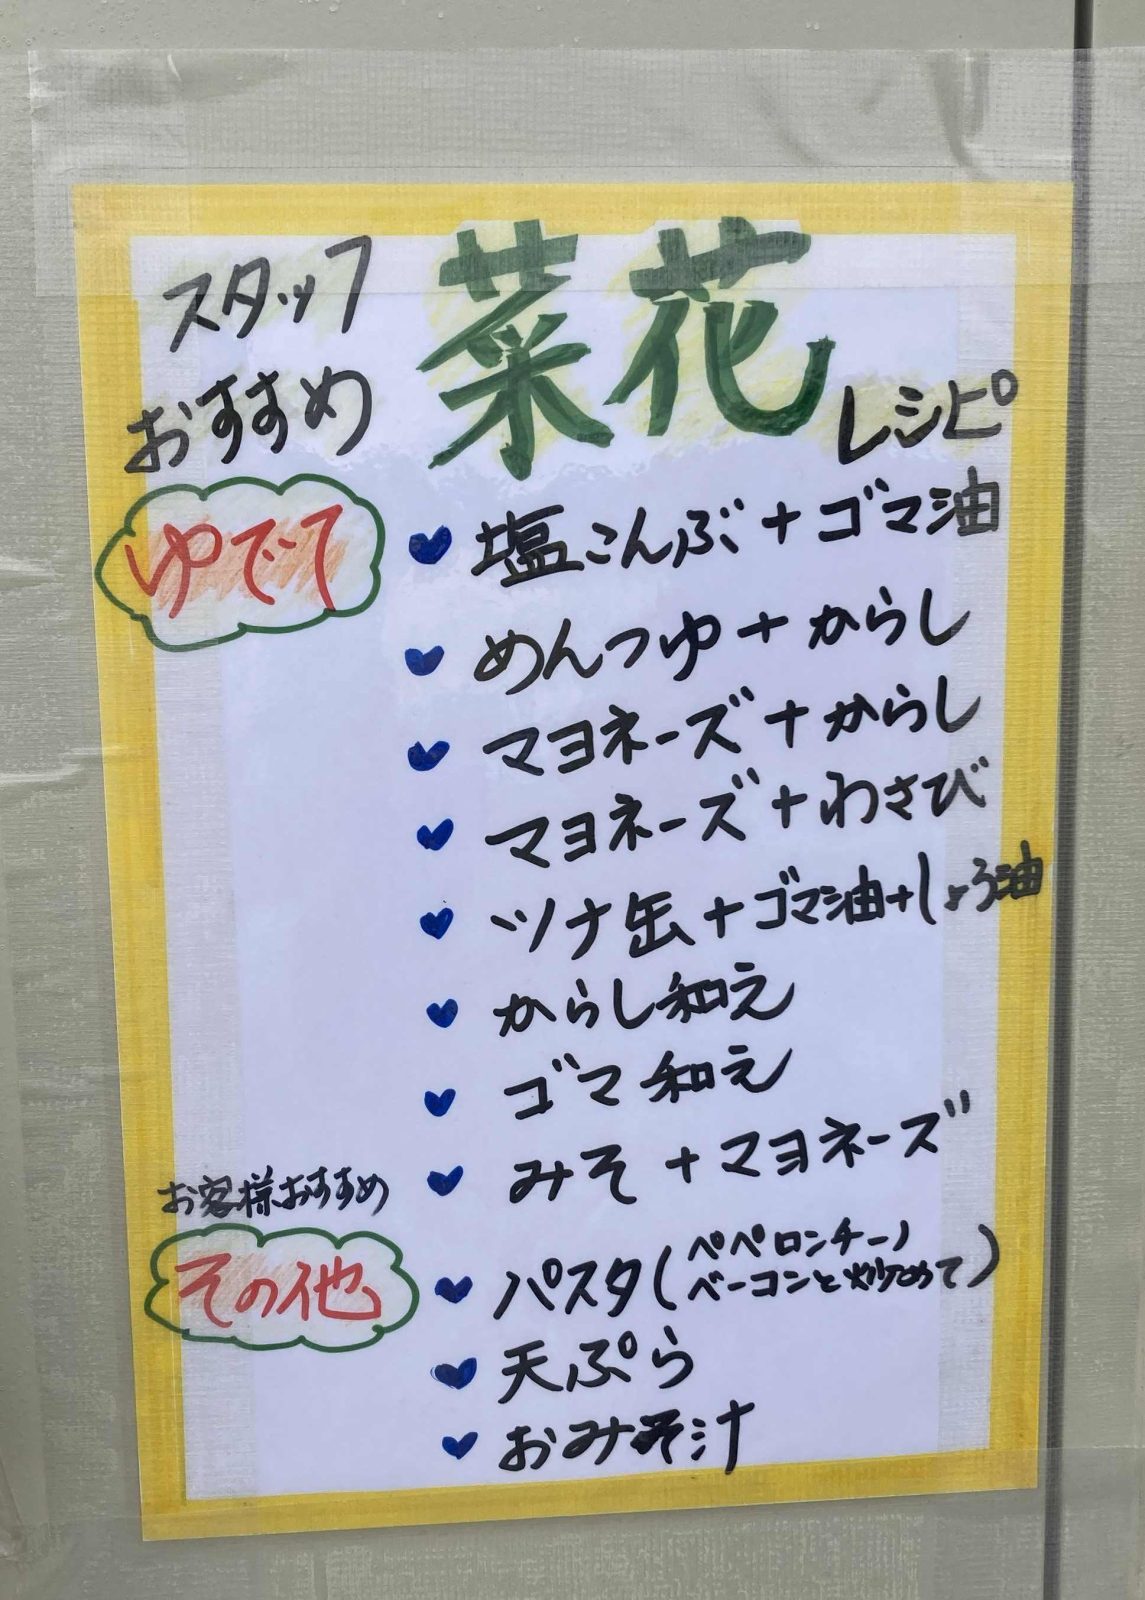 スタッフ
おすすめ
菜花
レシピ
ゆでて
♥ 塩こんぶ+ゴマ油
♥ めんつゆ+からし
♥ マヨネーズ+からし
♥ マヨネーズ+わさび
♥ ツナ缶+ゴマ油+しょう油
♥ からし和え
♥ ゴマ和え
♥ みそ+マヨネーズ
お客様おすすめ
その他
♥ パスタ(ペペロンチーノ
ベーコンと炒めて)
♥ 天ぷら
♥ おみそ汁